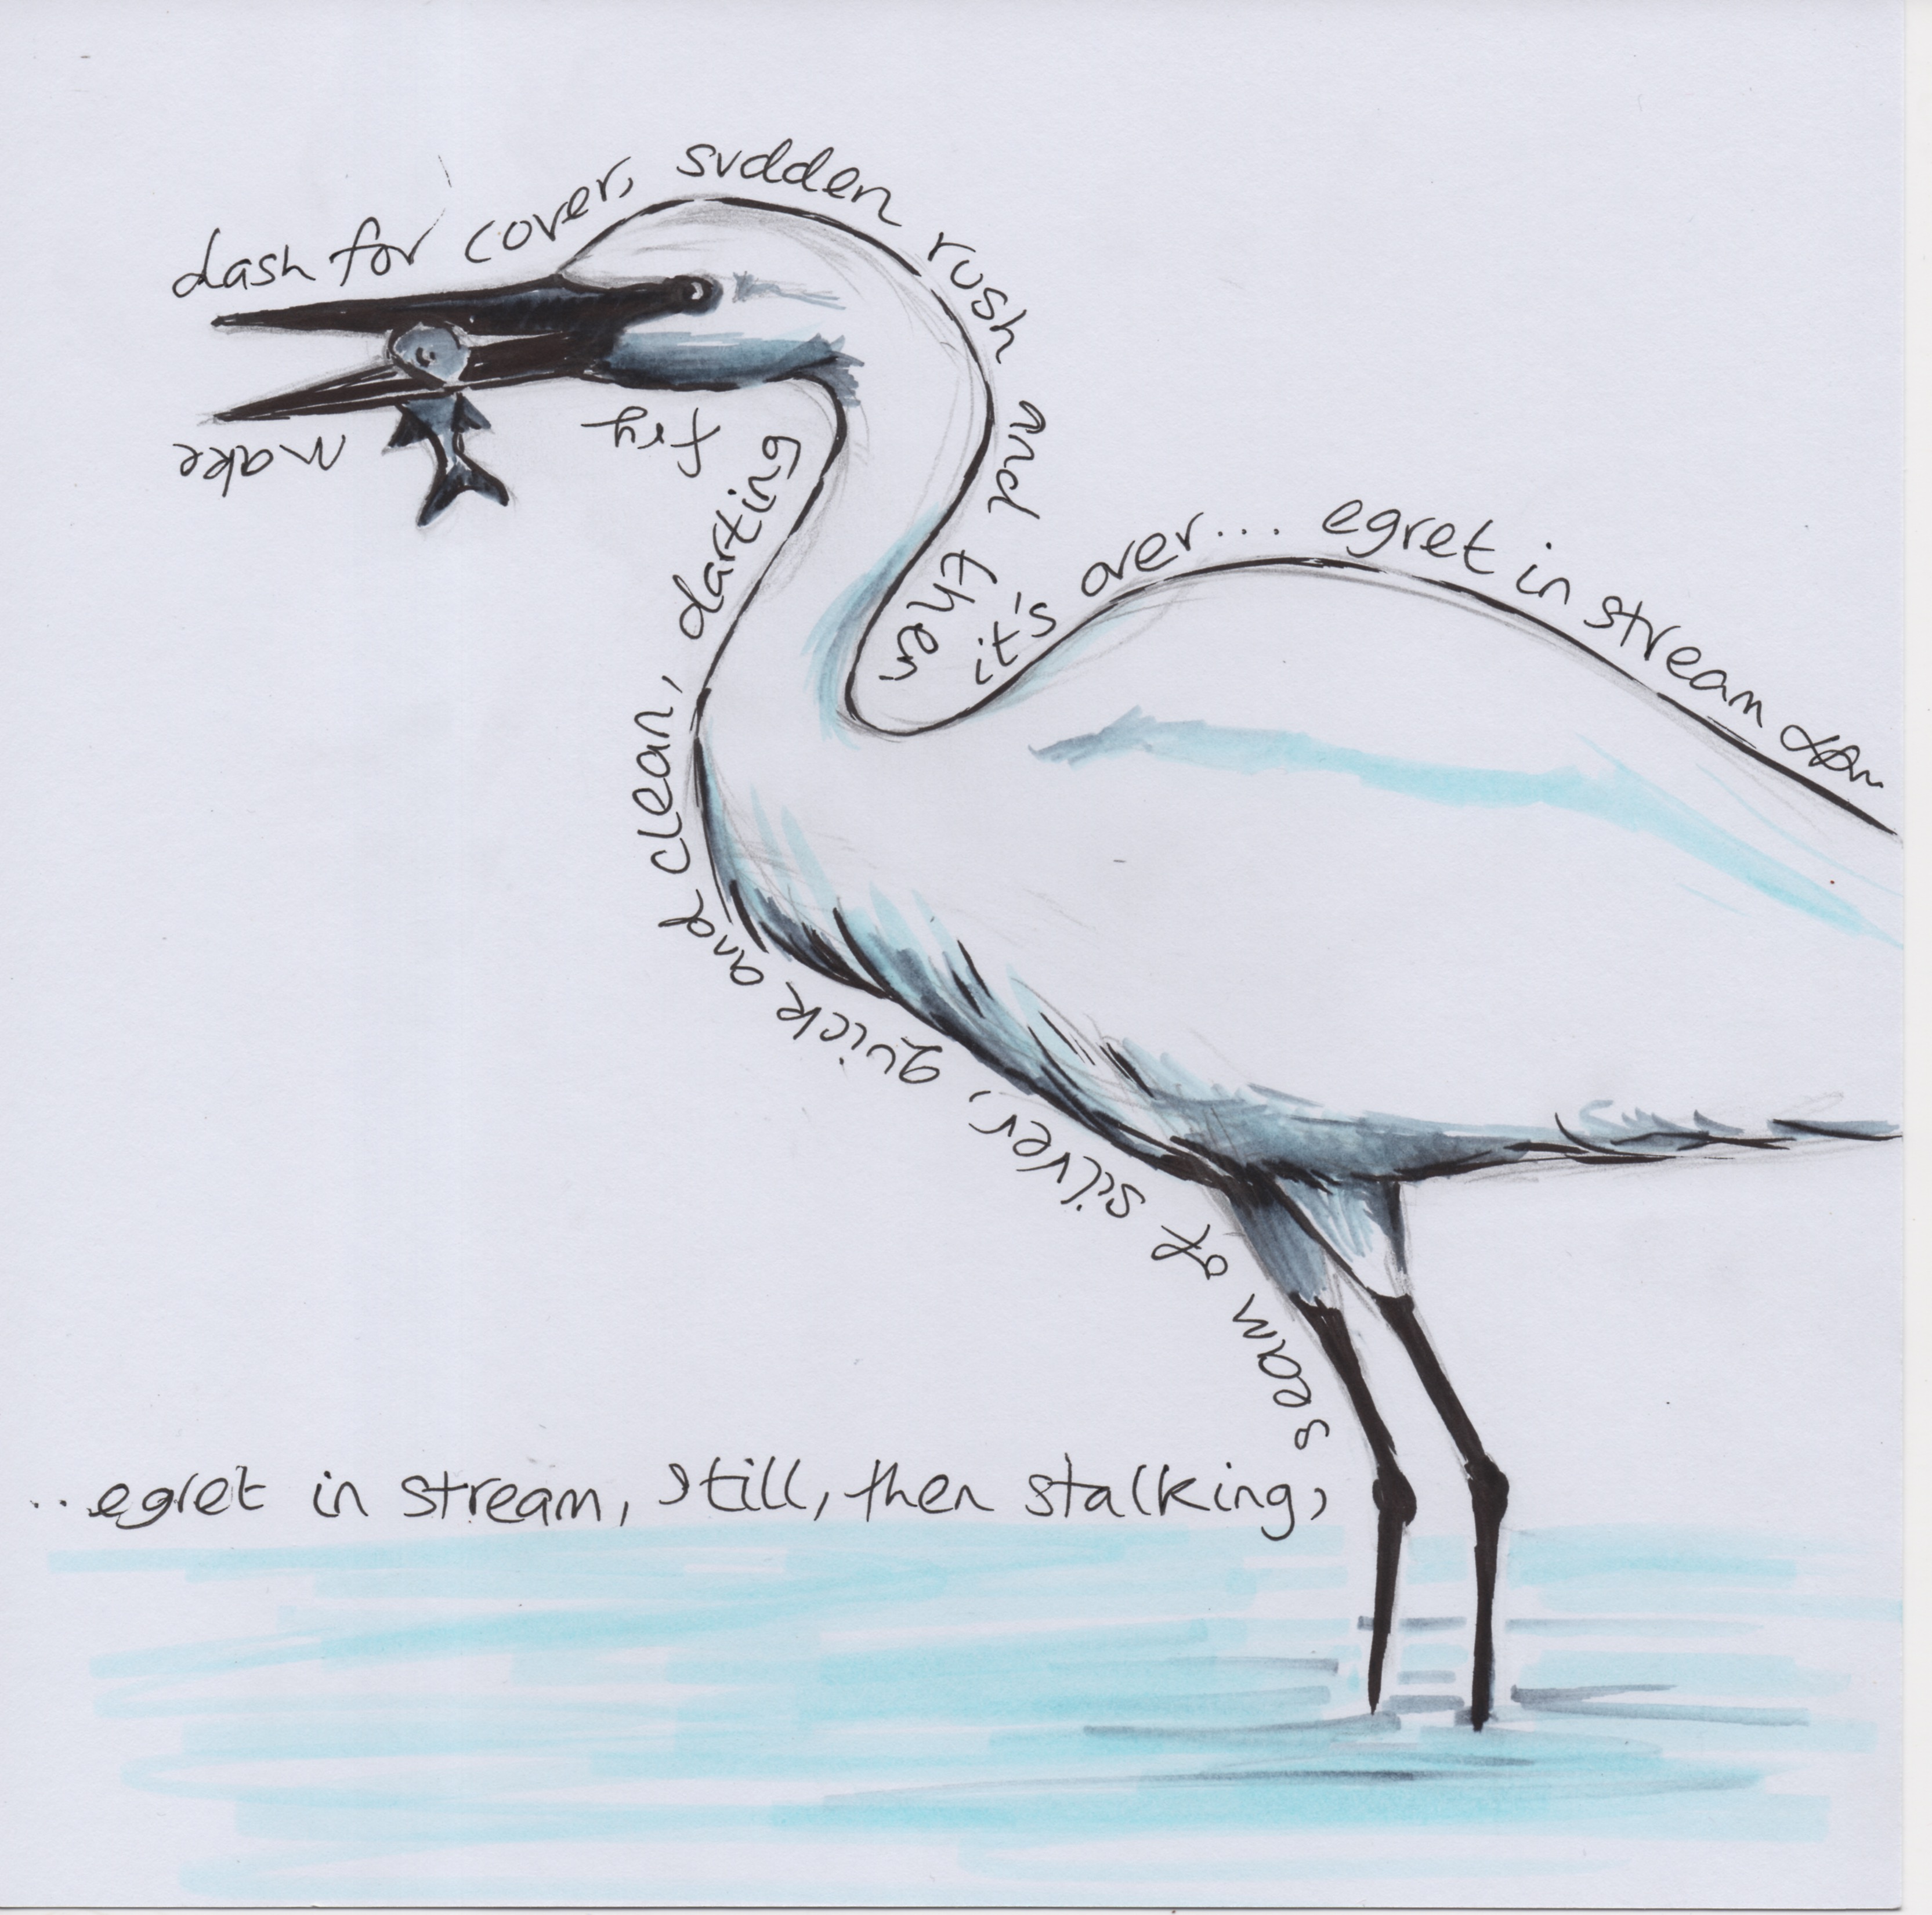 ..egret in stream, still, then stalking,
seam of silver, quick and clean, darting fry make
dash for cover, sudden rush and then it's over... egret in stream